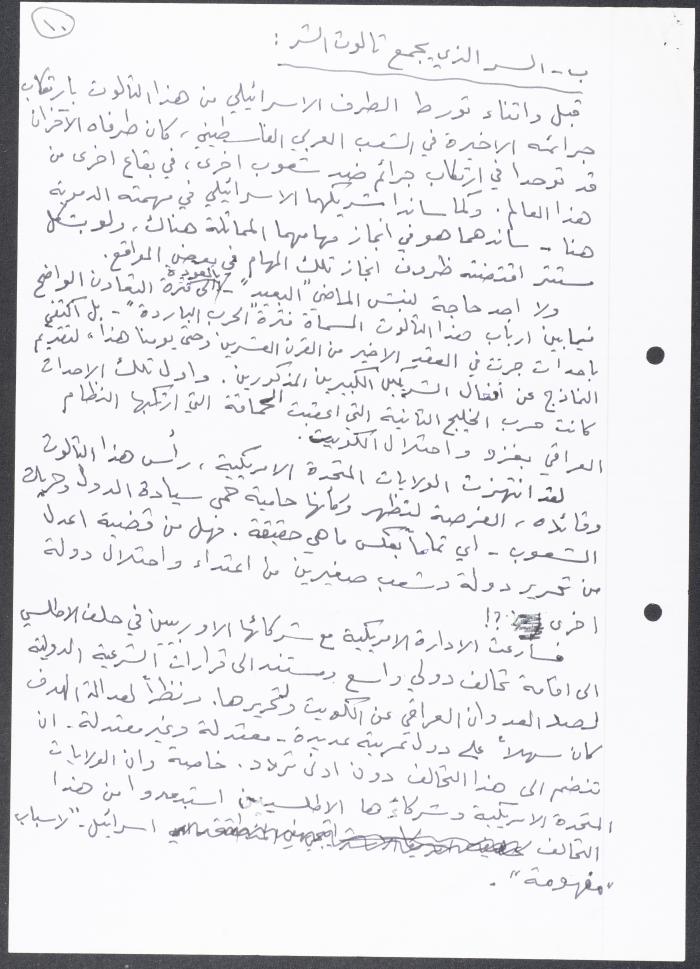 ١٠
ب - السر الذي يجمع ثالوث الشر :
قبل واثناء تورط الطرف الاسرائيلي من هذا الثالوث بارتكاب
جرائمه الاخيرة في الشعب العربي الفلسطيني ، كان طرفاه الآخران
قد توحدا في ارتكاب جرائم ضد شعوب اخرى ، في بقاع اخرى من
هذا العالم . وكما ساندا شريكهما الاسرائيلي في مهمته الدموية
هنا - ساندهما هو في انجاز مهامهما المماثلة هناك ، ولو بشكل
مستتر اقتضته ظروف انجاز تلك المهام في بعض المواقع .
ولا اجد حاجة لنبش الماضي "البعيد" - بالعودة الى فترة التعاون الواضح
فيما بين ارباب هذا الثالوث المسماة فترة "الحرب الباردة" - بل اكتفي
باحداث جرت في العقد الاخير من القرن العشرين وحتى يومنا هذا ، لتقديم
النماذج عن افعال الشريكين الكبيرين المذكورين . واول تلك الاحداث
كانت حرب الخليج الثانية التي اعقبت الحماقة التي ارتكبها النظام
العراقي بغزو واحتلال الكويت .
لقد انتهزت الولايات المتحدة الامريكية ، رأس هذا الثالوث
وقائده ، الفرصة لتظهر وكأنها حامية حمى سيادة الدول وحرية
الشعوب - اي تماماً بعكس ما هي حقيقة . فهل من قضية اعدل
من تحرير دولة وشعب صغيرين من اعتداء واحتلال دولة
اخرى ؟!
فسارعت الادارة الامريكية مع شركائها الاوربيين في حلف الاطلسي
الى اقامة تحالف دولي واسع ومستند الى قرارات الشرعية الدولية
لصد العدوان العراقي عن الكويت وتحريرها . ونظراً لعدالة الهدف
كان سهلاً على دول عربية عديدة - معتدلة وغير معتدلة - ان
تنضم الى هذا التحالف دون ادنى تردد . خاصة وان الولايات
المتحدة الامريكية وشركاءها الاطلسيين استبعدوا من هذا
التحالف اسرائيل - "لاسباب
مفهومة" .